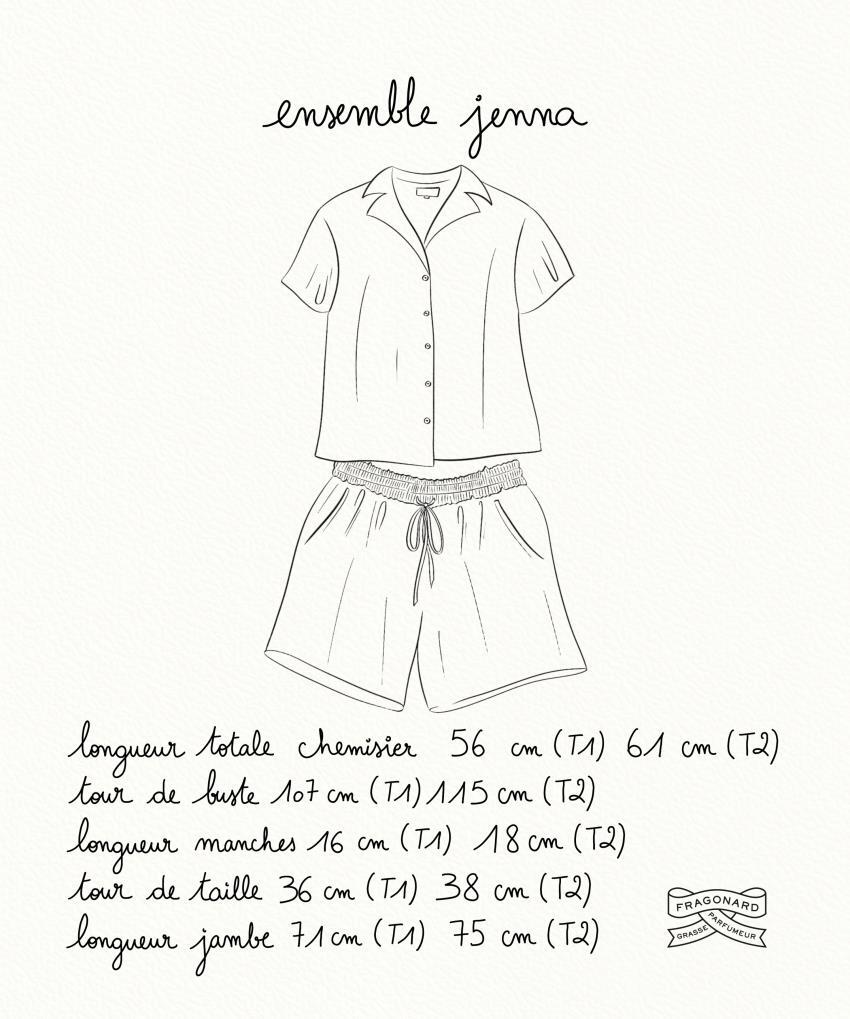 ensemble jenna
longueur totale chemisier 56 cm (T1) 61 cm (T2)
tour de buste 107 cm (T1) 115 cm (T2)
longueur manches 16 cm (T1) 18 cm (T2)
tour de taille 36 cm (T1) 38 cm (T2)
longueur jambe 71 cm (T1) 75 cm (T2)
FRAGONARD
GRASSE PARFUMEUR